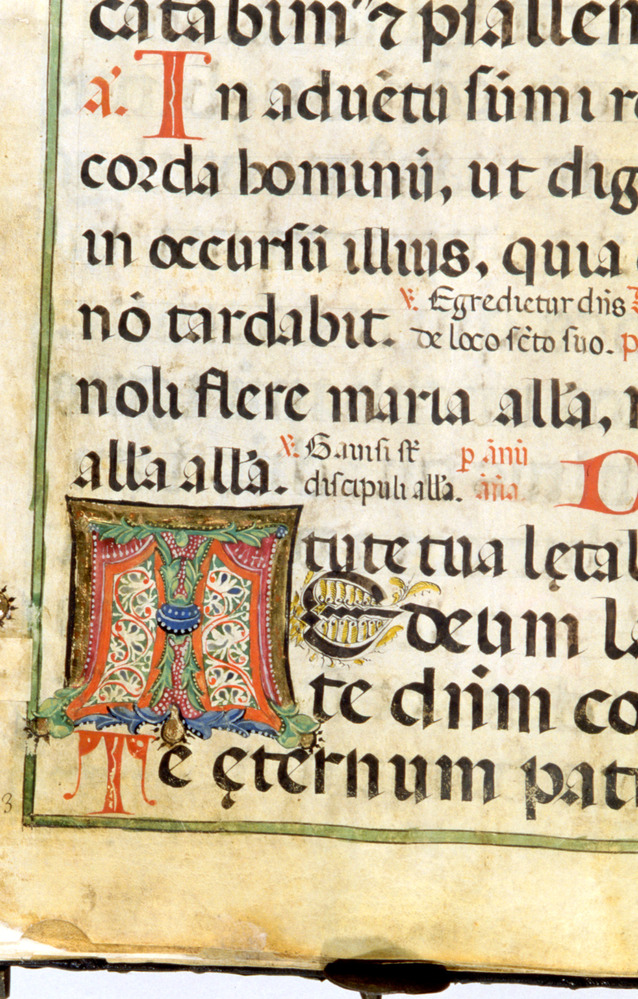 catabim⁹ ⁊ pſallem
a᷎. In aduētu ſūmi r
corda hominū, ut dig
in occurſū illius, quia
nō tardabit. ℣. Egredietur dn̄s
de loco ſc̄to ſuo. p
noli flere maria all'a,
all'a all'a. ℣. Gauiſi ſt̄ p ānū
diſcipuli all'a. āna
tute tua lętab
TE deum la
te dn̄m co
Te ęternum patr